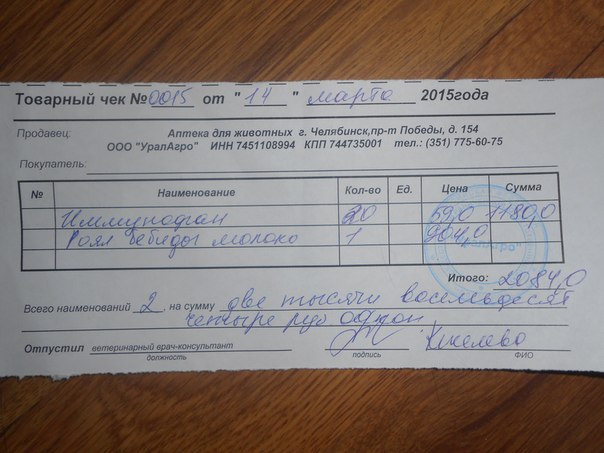 Товарный чек № 0015 от "14" марта 2015года
Продавец: Аптека для животных г. Челябинск,пр-т Победы, д. 154
ООО "УралАгро" ИНН 7451108994 КПП 744735001 тел.: (351) 775-60-75
Покупатель:
№ Наименование Кол-во Ед. Цена Сумма
Иммунофан 20 59,0 1180,0
Роял бебидог молоко 1 904,0
"УралАгро"
Итого: 2084,0
Всего наименований 2, на сумму две тысячи восемьдесят
четыре руб 00 коп
Отпустил ветеринарный врач-консультант
должность подпись ФИО